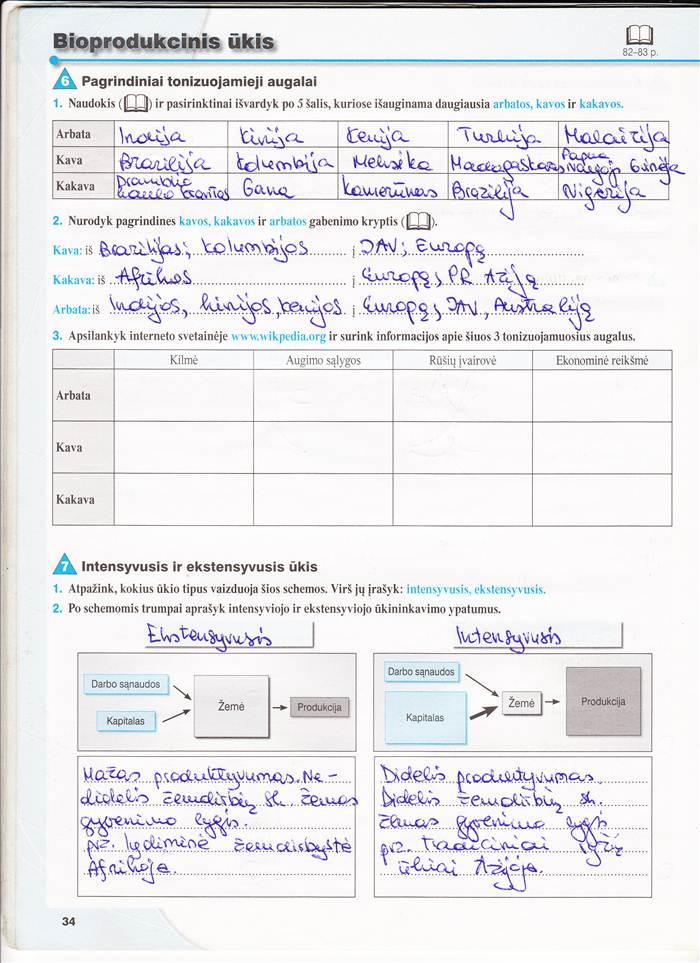 Bioprodukcinis ūkis
82–83 p.
6 Pagrindiniai tonizuojamieji augalai
1. Naudokis ( ) ir pasirinktinai išvardyk po 5 šalis, kuriose išauginama daugiausia arbatos, kavos ir kakavos.
Arbata Indija Kinija Kenija Turkija Malaizija
Kava Brazilija Kolumbija Meksika Madagaskaras Papua Naujoji Gvinėja
Kakava Dramblio kaulo krantas Gana Kamerūnas Brazilija Nigerija
2. Nurodyk pagrindines kavos, kakavos ir arbatos gabenimo kryptis ( ).
Kava: iš Brazilijos; Kolumbijos į JAV; Europą
Kakava: iš Afrikos į Europą, PR Aziją
Arbata: iš Indijos, Kinijos, Kenijos į Europą, JAV, Australiją
3. Apsilankyk interneto svetainėje www.wikpedia.org ir surink informacijos apie šiuos 3 tonizuojamuosius augalus.
Kilmė Augimo sąlygos Rūšių įvairovė Ekonominė reikšmė
Arbata
Kava
Kakava
7 Intensyvusis ir ekstensyvusis ūkis
1. Atpažink, kokius ūkio tipus vaizduoja šios schemos. Virš jų įrašyk: intensyvusis, ekstensyvusis.
2. Po schemomis trumpai aprašyk intensyviojo ir ekstensyviojo ūkininkavimo ypatumus.
Ekstensyvusis
Darbo sąnaudos
Kapitalas
Žemė
Produkcija
Intensyvusis
Darbo sąnaudos
Kapitalas
Žemė
Produkcija
Mažas produktyvumas. Ne-
didelis žemdirbių sk. Žemas
gyvenimo lygis.
pvz. lydiminė žemdirbystė
Afrikoje.
Didelis produktyvumas.
Didelis žemdirbių sk.
Žemas gyvenimo lygis
pvz. tradiciniai ryžių
ūkiai Azijoje.
34